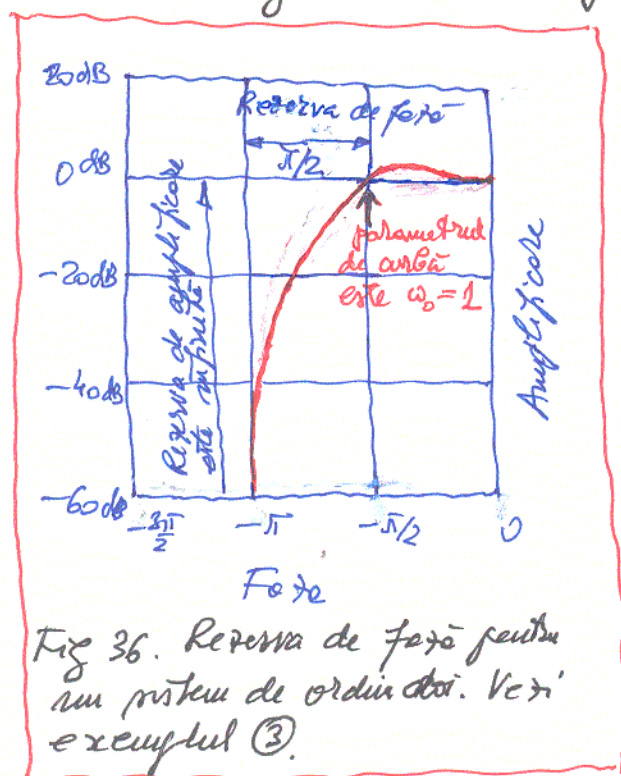 20dB
Rezerva de fază
π/2
0 dB
Rezerva de amplificare
este infinită
parametrul
de curbă
este ω₀=1
-20dB
Amplificare
-40dB
-60dB
-3π/2
-π
-π/2
0
Faza
Fig 36. Rezerva de fază pentru
un sistem de ordin doi. Vezi
exemplul ③.